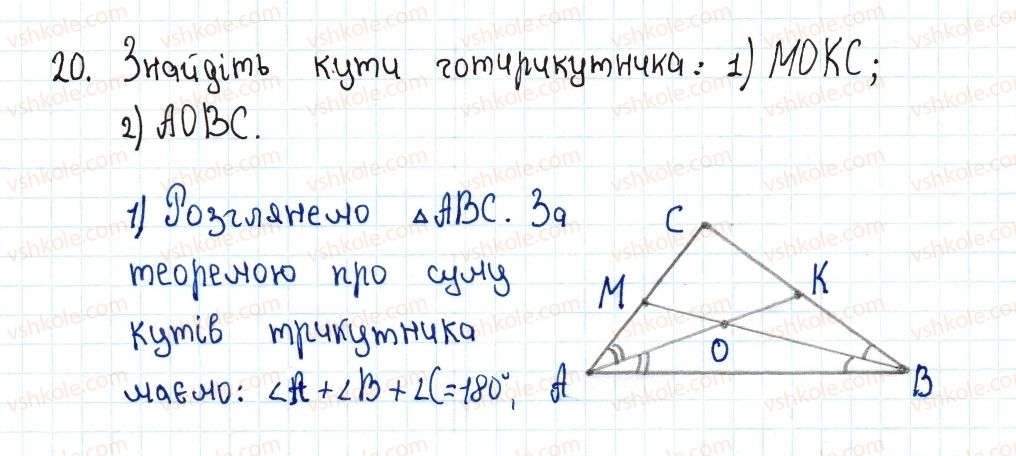 20. Знайдіть кути чотирикутника: 1) МОКС;
2) АОВС.
1) Розглянемо △АВС. За
теоремою про суму
кутів трикутника
маємо: ∠А+∠В+∠С=180°,
С
М
К
О
А
В
vshkole.com